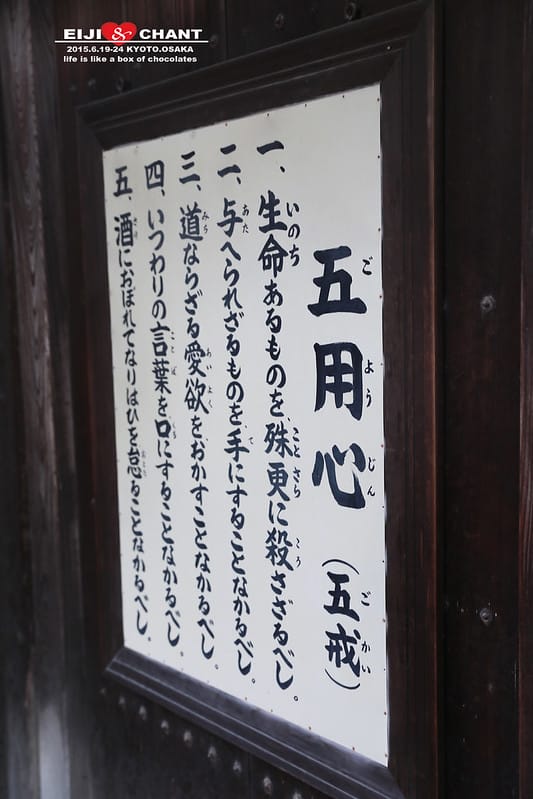 EIJI & CHANT
2015.6.19-24 KYOTO.OSAKA
life is like a box of chocolates
五用心（五戒）
ごようじん ごかい
一、生命あるものを、殊更に殺さざるべし。
いのち ことさら ころ
二、与へられざるものを、手にすることなかるべし。
あた て
三、道ならざる愛欲をおかすことなかるべし。
みち あいよく
四、いつわりの言葉を、口にすることなかるべし。
ことば くち
五、酒におぼれてなりはひを怠ることなかるべし。
さけ おこた